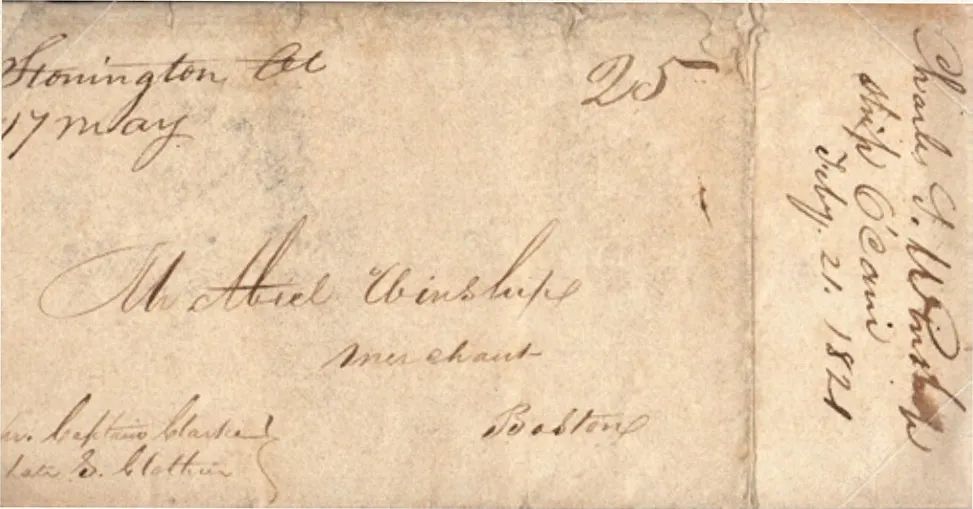 Stonington Ct
17 May
25
Mr Abiel Winship
Merchant
Boston
Captain Clarke
late E. Clothier
Charles F. Winship
Ship O'Cain
Feby. 21. 1821